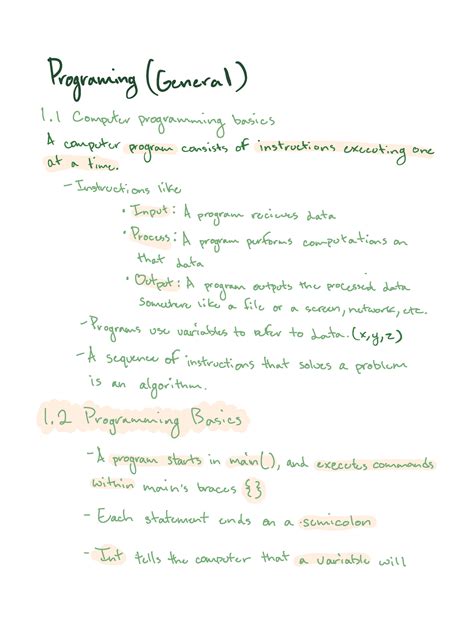 Programing (General)
1.1 Computer programming basics
A computer program consists of instructions executing one
at a time.
- Instructions like
• Input: A program recieves data
• Process: A program performs computations on
that data
• Output: A program outputs the processed data
somewhere like a file or a screen, network, etc.
- Programs use variables to refer to data. (x,y,z)
- A sequence of instructions that solves a problem
is an algorithm.
1.2 Programming Basics
- A program starts in main(), and executes commands
within main's braces {}
- Each statement ends on a semicolon
- Int tells the computer that a variable will